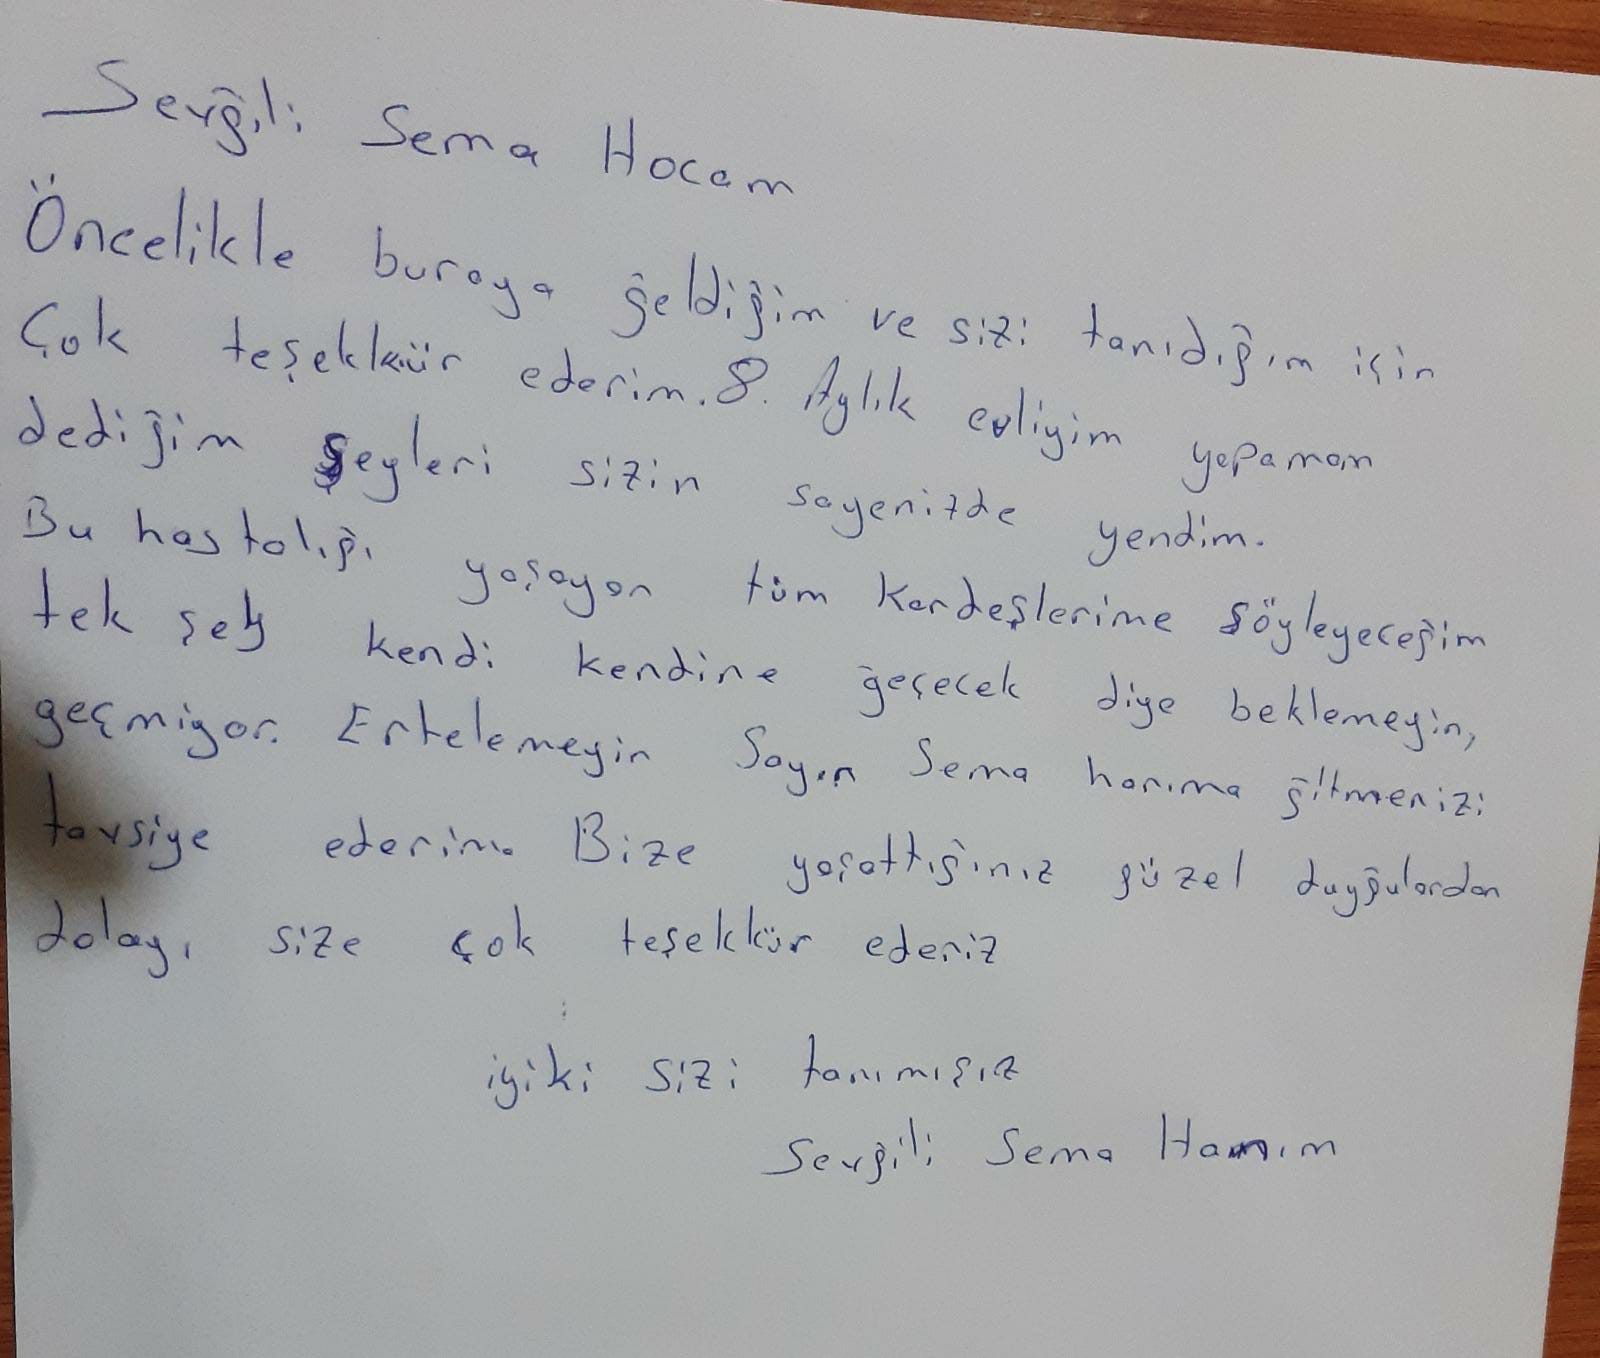 Sevğili Sema Hocam
Öncelikle buraya ğeldiğim ve sizi tanıdığım için
Çok teşekkür ederim. 8. Aylık evliyim yapamam
dediğim şeyleri sizin sayenizde yendim.
Bu hastalığı yaşayan tüm kardeşlerime söyleyeceğim
tek şey kendi kendine ğeçecek diye beklemeyin,
geçmiyor. Ertelemeyin Sayın Sema hanıma ğitmenizi
tavsiye ederim. Bize yaşattığınız ğüzel duyğulardan
dolayı size çok teşekkür ederiz
iyiki sizi tanımışız
Sevğili Sema Hanım